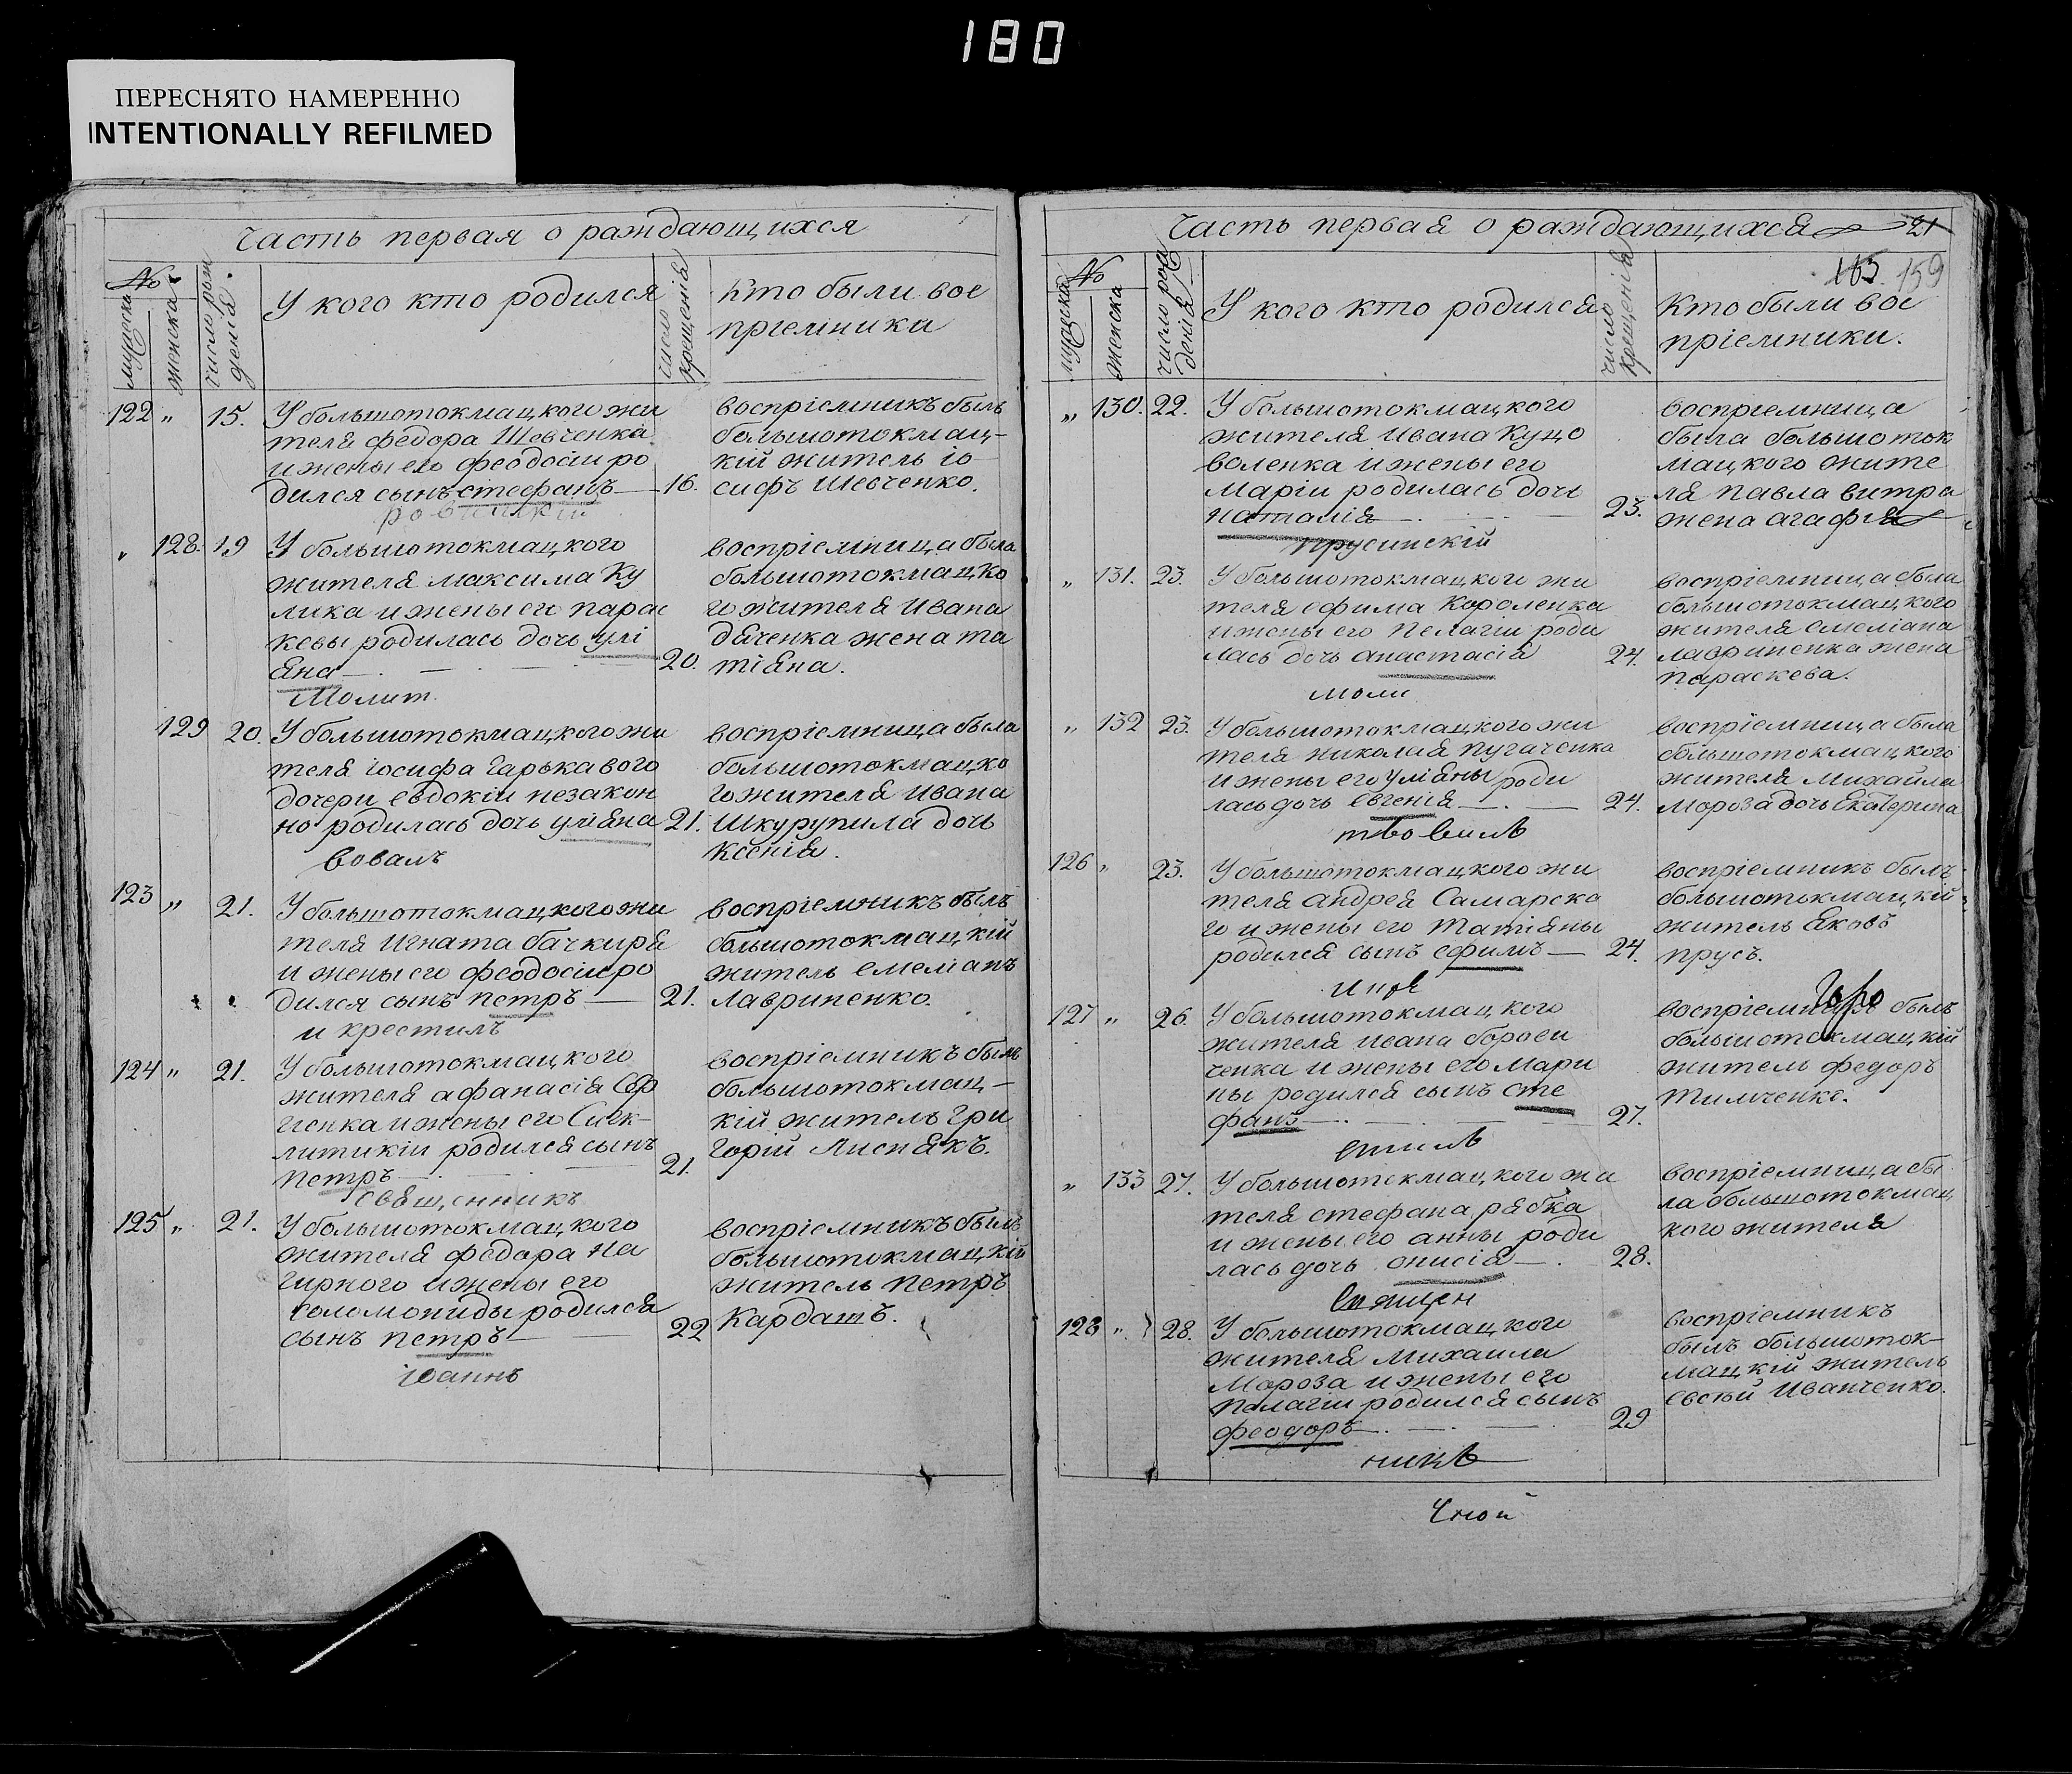 180
ПЕРЕСНЯТО НАМЕРЕННО
INTENTIONALLY REFILMED
Часть первая о раждающихся
№
мужеска
женска
число рож
денія
У кого кто родился
число
крещенія
Кто были вос
пріемника
122 „ 15. У большотокмацкого жи
теля федора Шевченка
и жены его феодосіи ро
дился сынъ стефанъ — 16.
воспріемникъ былъ
большотокмац-
кій житель іо
сифъ Шевченко.
„ 128. 19 У большотокмацкого
жителя максима Ку
лика и жены его парас
кевы родилась дочь улі
яна — 20.
Молит
воспріемница была
большотокмацко
го жителя Ивана
дяченка жена та
тіяна.
129 20. У большотокмацкого жи
теля іосифа Гарькавого
дочери евдокіи незакон
но родилась дочь уліяна 21.
вовалъ
воспріемница была
большотокмацко
го жителя Ивана
Шкурупила дочь
Ксенія.
123 „ 21. У большотокмацкого жи
теля Игната бачкиря
и жены его феодосіи ро
дился сынъ петръ — 21.
и крестилъ
воспріемникъ былъ
большотокмацкій
житель емеліанъ
Лавриненко.
124 „ 21. У большотокмацкого
жителя афанасія
и жены его
литикіи родился сынъ
петръ — 21.
священникъ
воспріемникъ былъ
большотокмац-
кій житель гри
горій Лиснякъ.
125 „ 21. У большотокмацкого
жителя федора на
гирного и жены его
соломониды родился
сынъ петръ — 22
іоаннъ
воспріемникъ былъ
большотокмацкій
житель петръ
Кардашъ.
Часть первая о раждающихся 21
165. 159
№
мужеска
женска
число рож
денія
У кого кто родился
число
крещенія
Кто были вос
пріемники.
„ 130. 22. У большотокмацкого
жителя ивана Куцо
воленка и жены его
Маріи родилась дочь
наталія — 23.
прусинскій
воспріемница
была большоток
мацкого жите
ля павла витра
жена агафія
„ 131. 23. У большотокмацкого жи
теля ефима Короленка
и жены его Пелагіи роди
лась дочь анастасія 24.
моли
воспріемница была
большотокмацкого
жителя емеліана
лавриненка жена
параскева.
„ 132 23. У большотокмацкого жи
теля николая пугаченка
и жены его уліяны роди
лась дочь Евгенія — 24.
воспріемница была
большотокмацкого
жителя Михайла
мороза дочь Екатерина
126 „ 23. У большотокмацкого жи
теля андрея Самарско
го и жены его татіяны
родился сынъ ефимъ — 24.
воспріемникъ былъ
большотокмацкій
житель яковъ
прусъ.
127 „ 26. У большотокмацкого
жителя ивана
ченка и жены его мари
ны родился сынъ сте
фанъ — 27.
воспріемникъ былъ
большотокмацкій
житель федоръ
Тимченко.
„ 133 27. У большотокмацкого жи
теля стефана рябка
и жены его анны роди
лась дочь онисія — 28.
воспріемница бы
ла большотокмац
кого жителя
128 „ 28. У большотокмацкого
жителя михаила
Мороза и жены его
Пелагіи родился сынъ
феодоръ — 29
никъ
воспріемникъ
былъ большоток-
мацкій житель
евсѣй Иванченко.